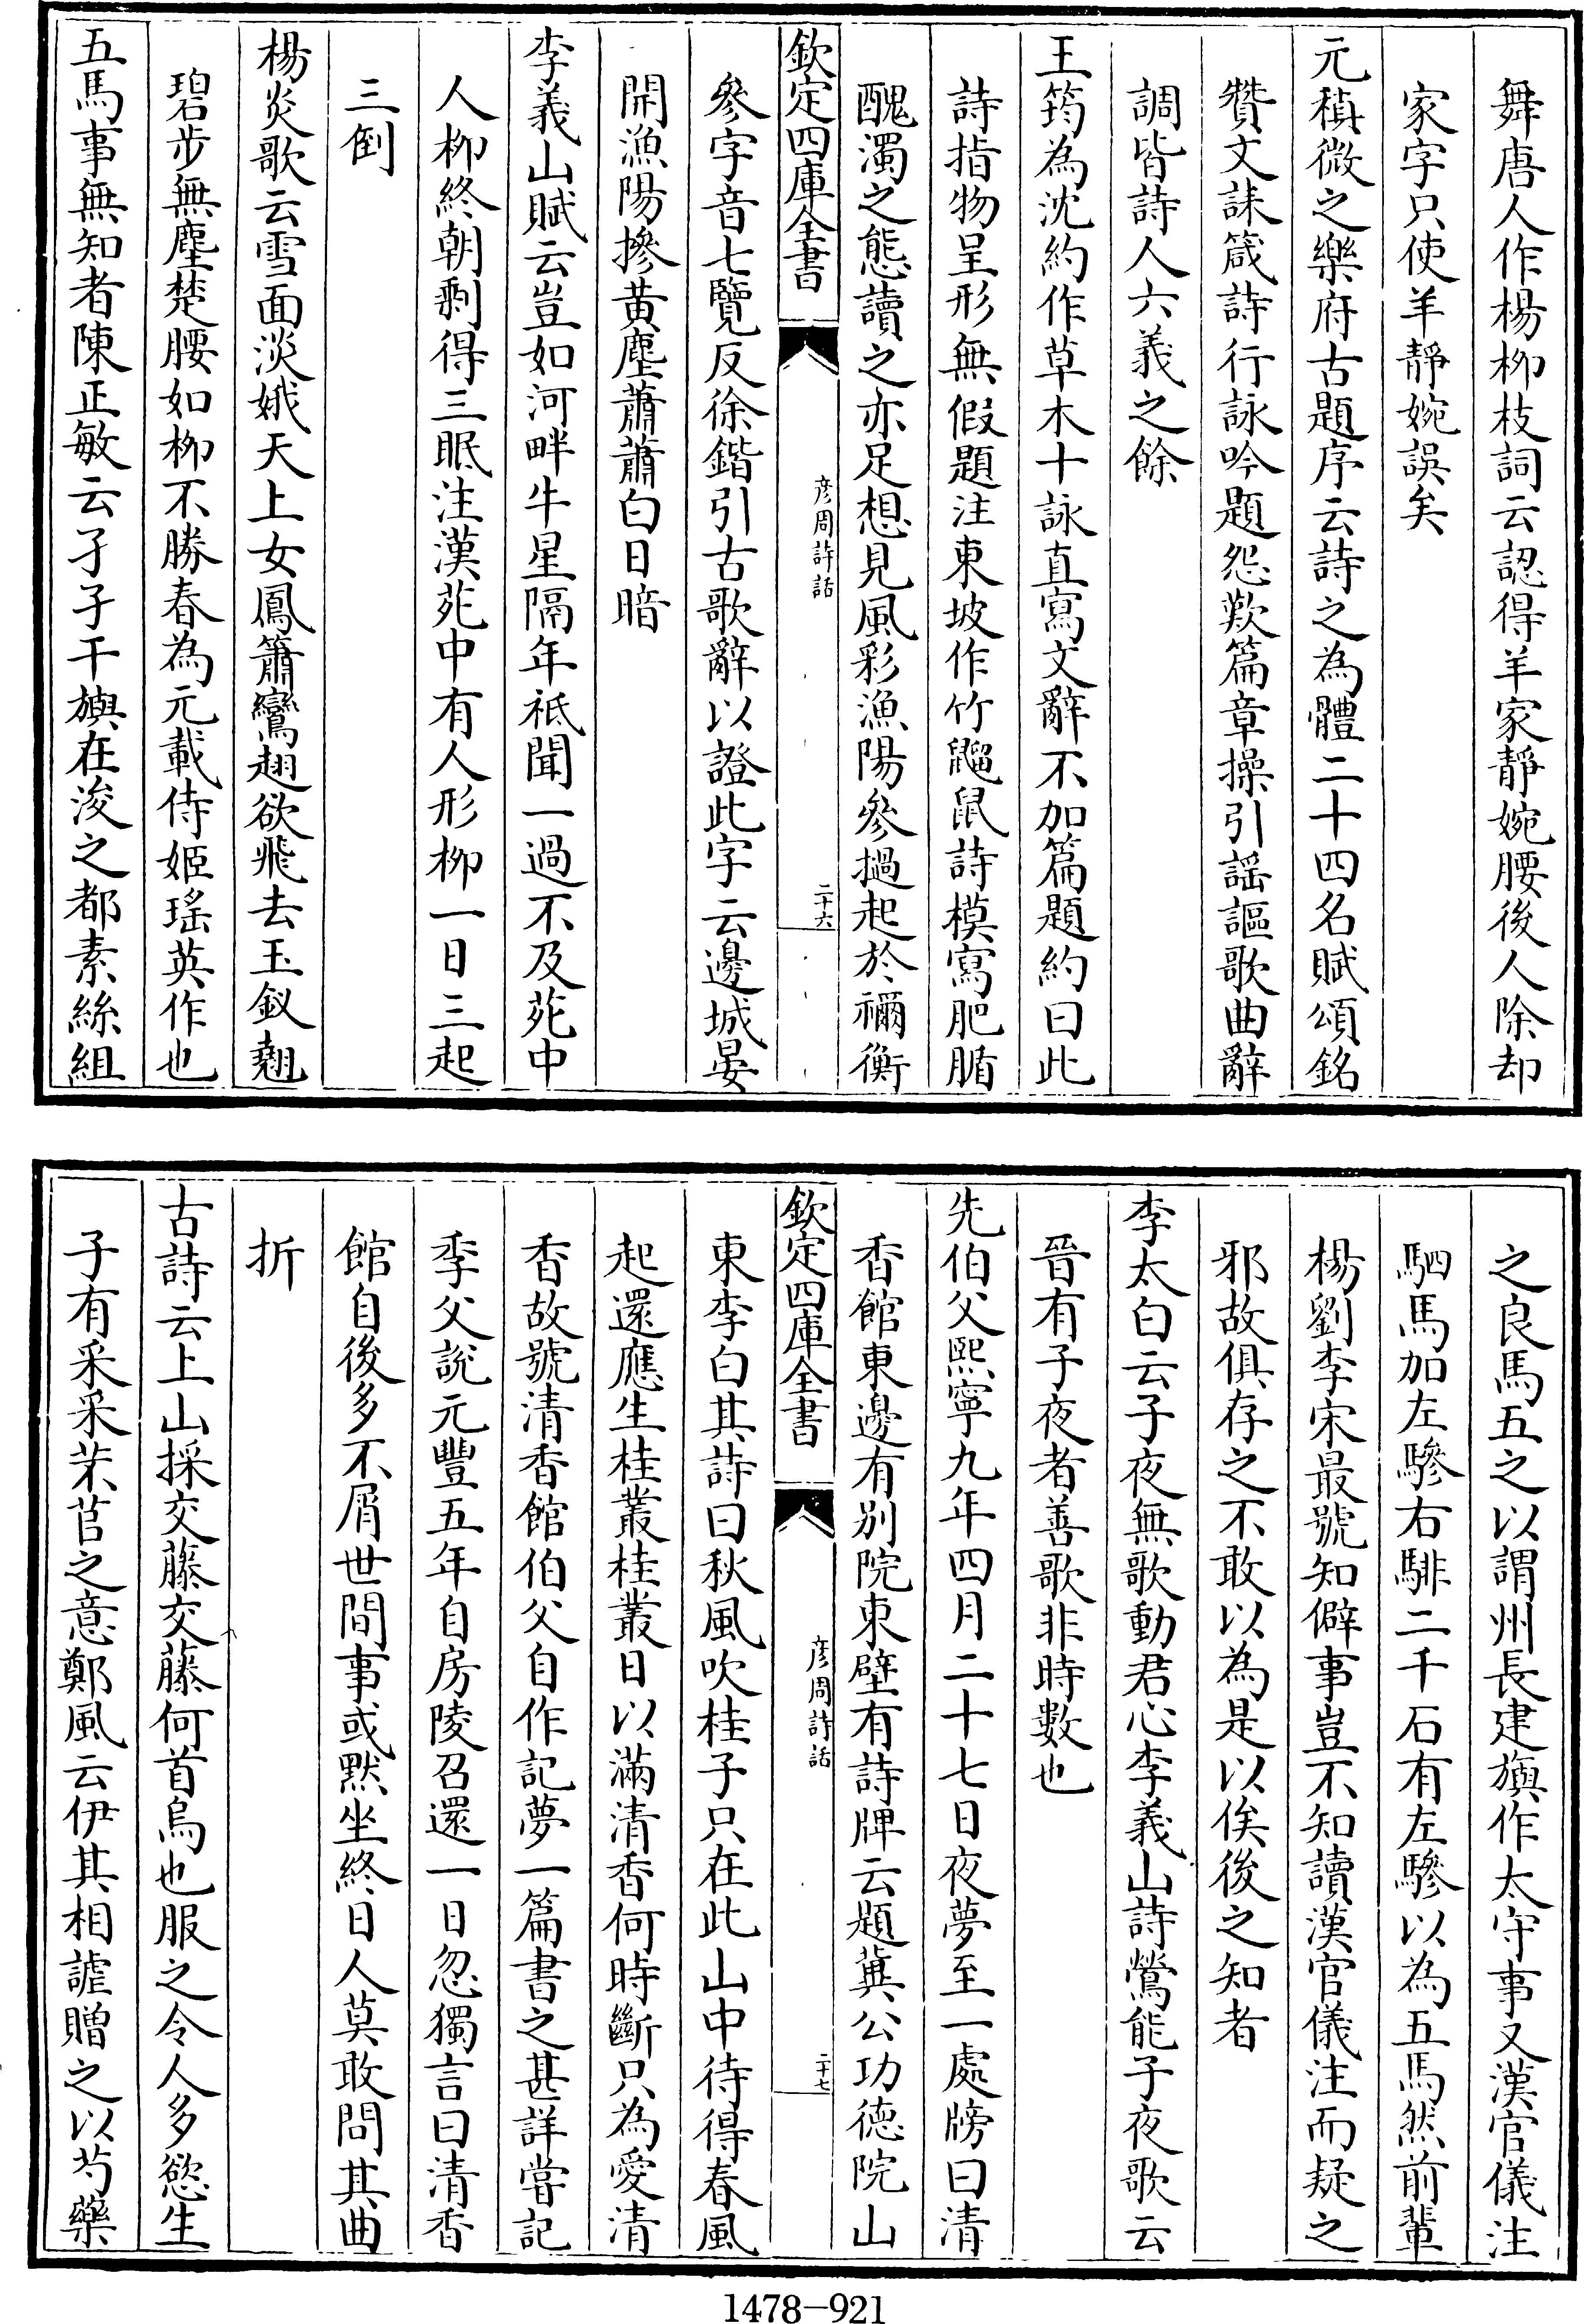 舞唐人作楊柳枝詞云認得羊家靜婉腰後人除却
家字只使羊靜婉誤矣
元稹微之樂府古題序云詩之為體二十四名賦頌銘
贊文誄箴詩行詠吟題怨歎篇章操引謡謳歌曲辭
調皆詩人六義之餘
王筠為沈約作草木十詠直寫文辭不加篇題約曰此
詩指物呈形無假題注東坡作竹䶉鼠詩模寫肥腯
醜濁之態讀之亦足想見風彩漁陽參撾起於禰衡
欽定四庫全書
彦周詩話
二十六
參字音七覽反徐鍇引古歌辭以證此字云邊城晏
開漁陽摻黄塵蕭蕭白日暗
李義山賦云豈如河畔牛星隔年祗聞一過不及苑中
人柳終朝剩得三眠注漢苑中有人形柳一日三起
三倒
楊炎歌云雪面淡娥天上女鳳簫鸞翅欲飛去玉釵翹
碧步無塵楚腰如柳不勝春為元載侍姬瑤英作也
五馬事無知者陳正敏云孑孑干旟在浚之都素絲組
之良馬五之以謂州長建旟作太守事又漢官儀注
駟馬加左驂右騑二千石有左驂以為五馬然前輩
楊劉李宋最號知僻事豈不知讀漢官儀注而疑之
邪故俱存之不敢以為是以俟後之知者
李太白云子夜無歌動君心李義山詩鶯能子夜歌云
晉有子夜者善歌非時數也
先伯父熙寧九年四月二十七日夜夢至一處牓曰清
香館東邊有别院東壁有詩牌云題兾公功德院山
欽定四庫全書
彦周詩話
二十七
東李白其詩曰秋風吹桂子只在此山中待得春風
起還應生桂叢桂叢日以滿清香何時斷只為愛清
香故號清香館伯父自作記夢一篇書之甚詳嘗記
季父説元豐五年自房陵召還一日忽獨言曰清香
館自後多不屑世間事或默坐終日人莫敢問其曲
折
古詩云上山採交藤交藤何首烏也服之令人多慾生
子有采采芣苢之意鄭風云伊其相謔贈之以芍藥
1478-921